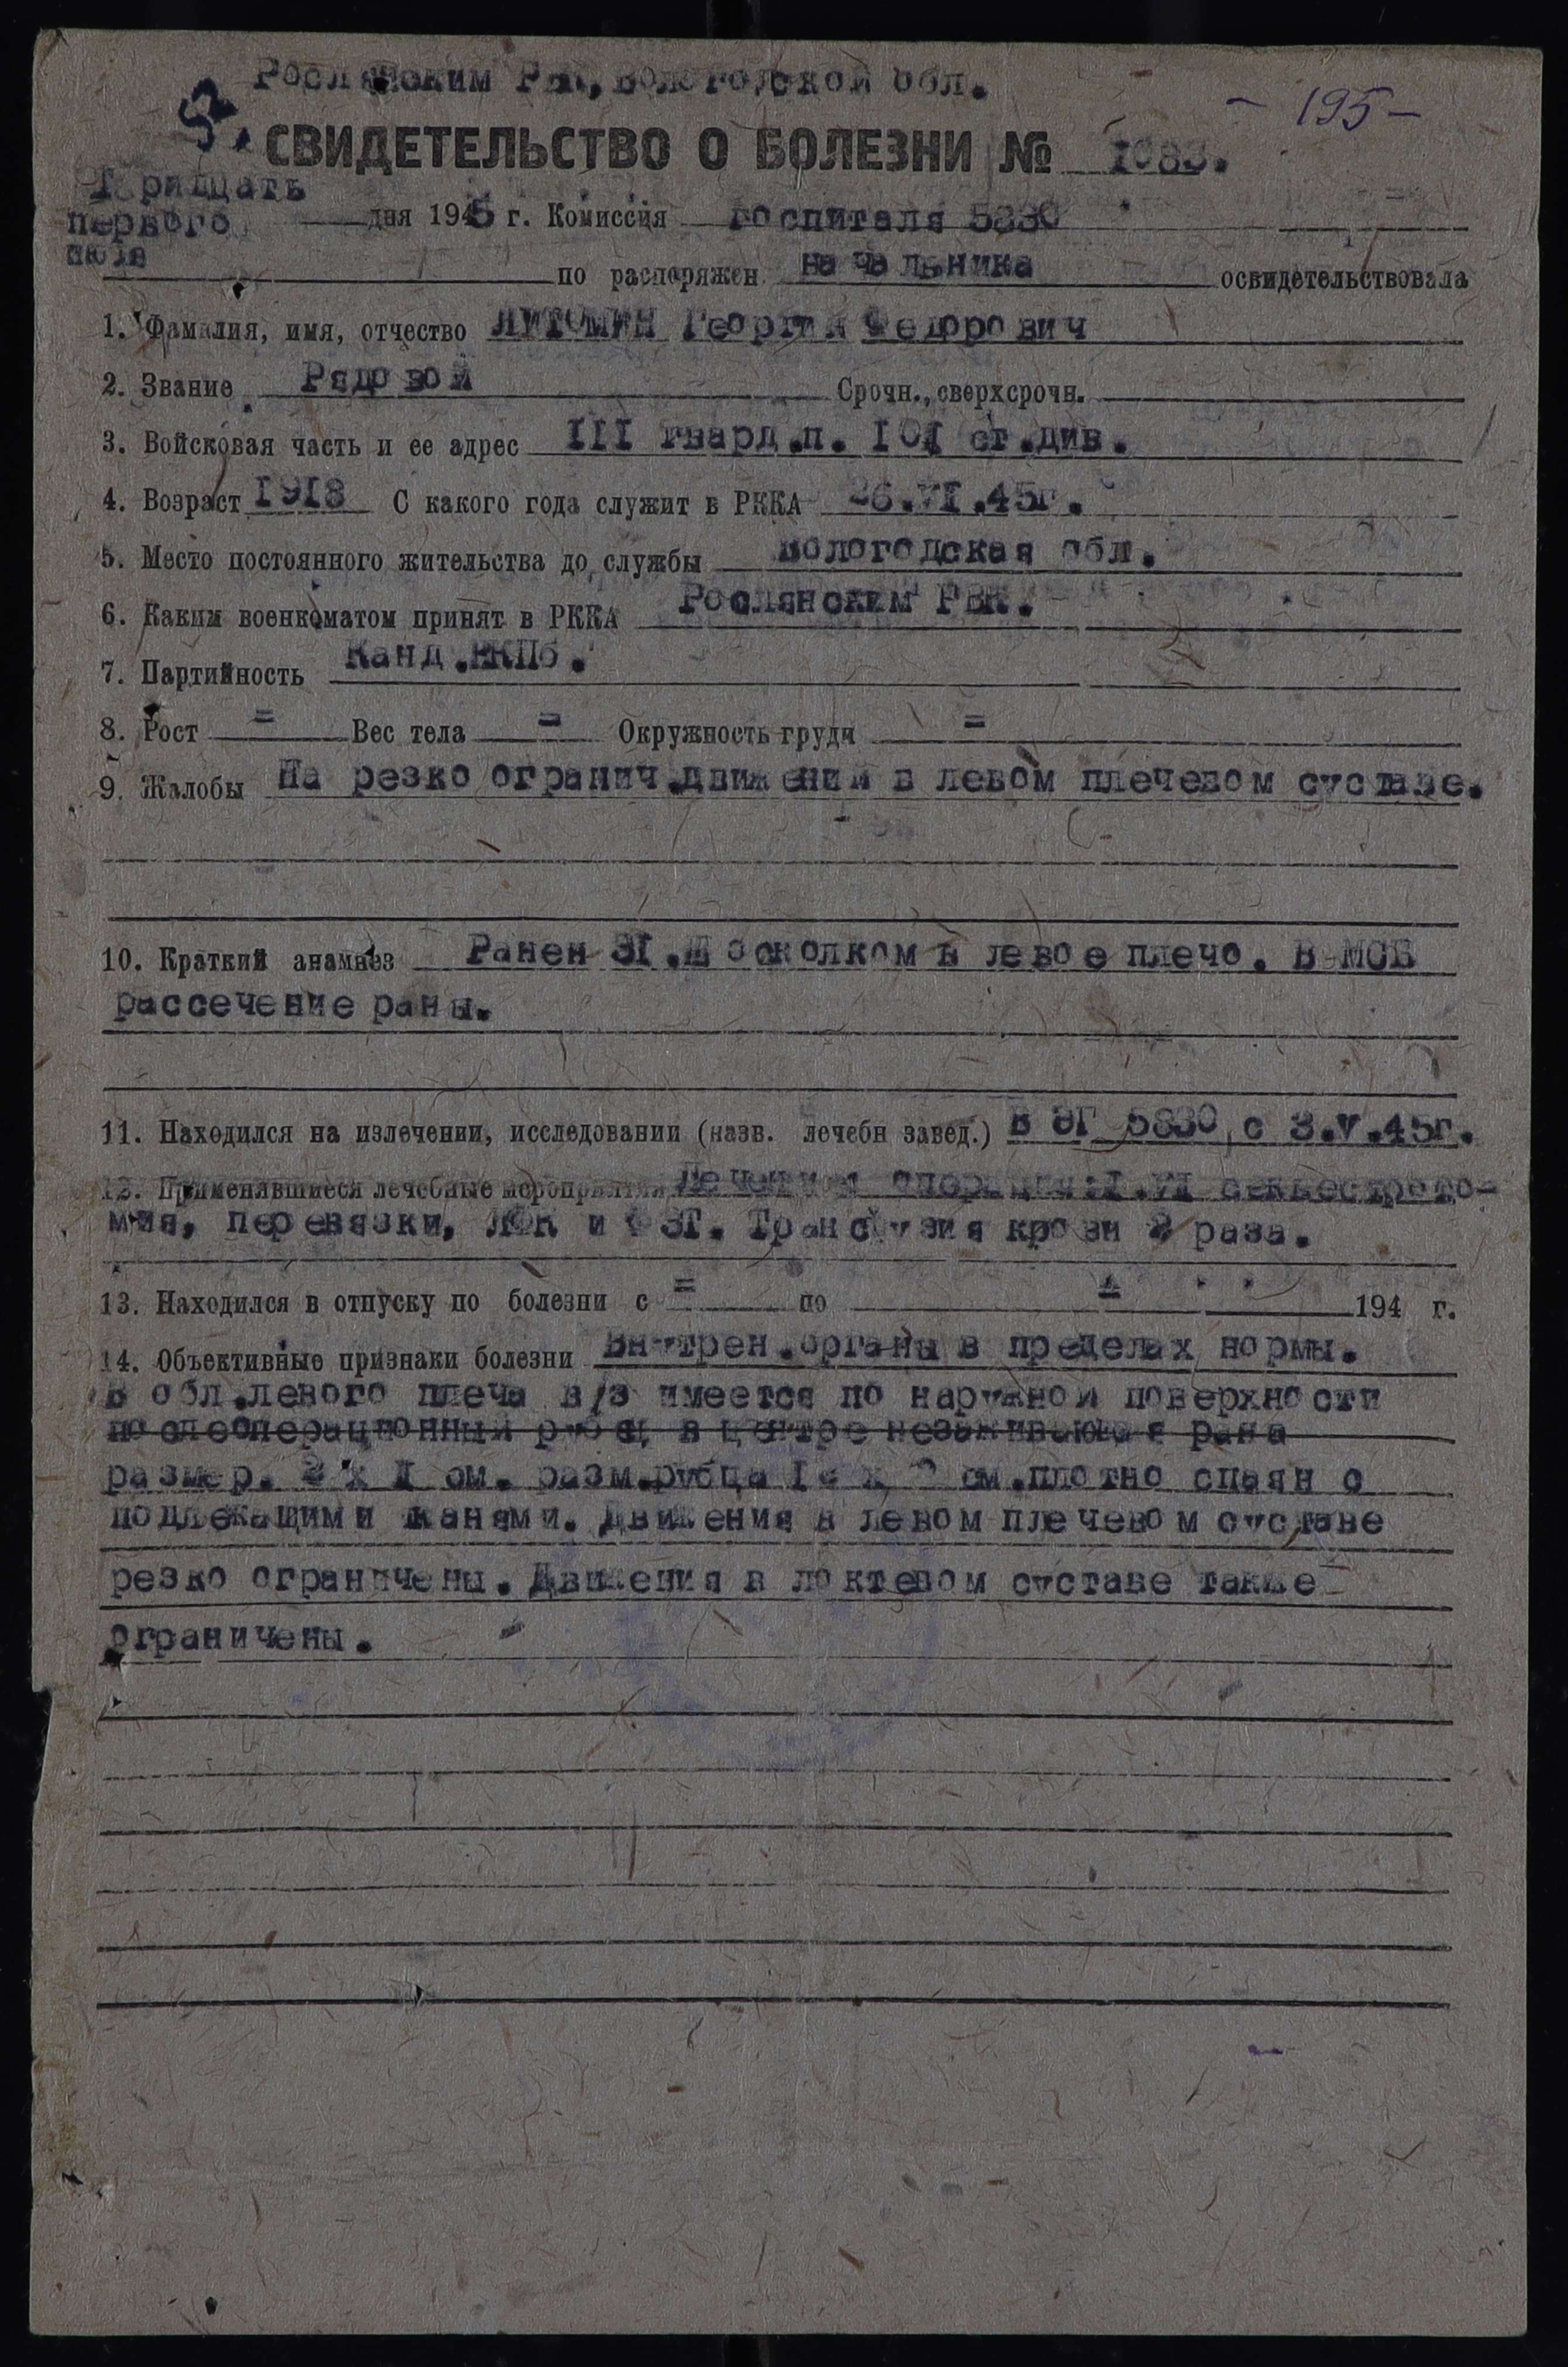 Рослянским РВК, Вологодской обл.
- 195 -
СВИДЕТЕЛЬСТВО О БОЛЕЗНИ № 1083.
Тридцать
первого дня 1945 г. Комиссия госпиталя 5830
июля
по распоряжен. начальника освидетельствовала
1. Фамилия, имя, отчество ЛИТОМИН Георгий Федорович
2. Звание Рядовой Срочн., сверхсрочн.
3. Войсковая часть и ее адрес III гвард.п. IOI ст.див.
4. Возраст I918 С какого года служит в РККА 26.VI.45г.
5. Место постоянного жительства до службы Вологодская обл.
6. Каким военкоматом принят в РККА Рослянским РВК.
7. Партийность Канд.ВКПб.
8. Рост = Вес тела = Окружность груди =
9. Жалобы На резко огранич.движений в левом плечевом суставе.
10. Краткий анамнез Ранен 3I.Ш осколком в левое плечо. В МСБ
рассечение раны.
11. Находился на излечении, исследовании (назв. лечебн завед.) В ЭГ 5830 с 3.V.45г.
12. Применявшиеся лечебные мероприятия операция:I.VI секвестрэкто-
мия, перевязки, ЛФК и ФЗТ. Трансфузия крови 2 раза.
13. Находился в отпуску по болезни с = по = 194 г.
14. Объективные признаки болезни Внутрен.органы в пределах нормы.
В обл.левого плеча в/з имеется по наружной поверхности
послеоперационный рубец в центре незаживающая рана
размер. 2 х I см. разм.рубца см.плотно спаян с
подлежащими канями. Движения в левом плечевом суставе
резко ограничены. Движения в локтевом суставе также
ограничены.